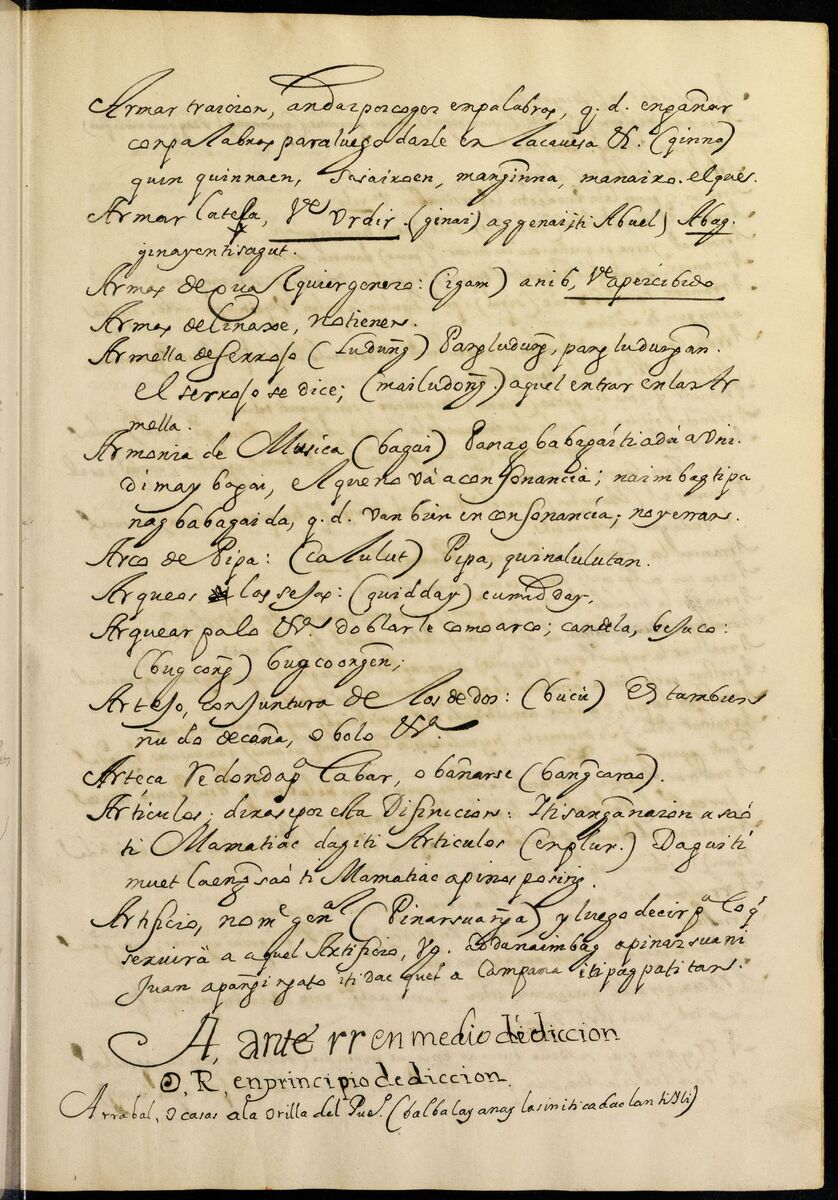 Armar traicion, andar por coger en palabras, q. d. engañar
con palabras para luego darle en la caveza &. (ginna)
quin quinnaen, sasairoen, manginna, manairo. el que es.
Armar la tela, Ve Urdir. (ginai) aggenaijti Abuel) Abag.
ginayentisagut.
Armas de qualquier genero: (igam) anib, Ve apercibido
Armas de linaxe, no tienen.
Armella de serrojo (Ludung) Pangludung, pangludungan.
el serrojo se dice; (mailudong) aquel entrar en las Ar
mella.
Armonia de Musica (bagai) Panagbabagáitiadú a Vni.
dimay bagai, el que no vá a consonancia; naimbagtipa
nagbabagaida, q. d. van bien en consonancia; no yerran.
Arco de Pipa: (calulut) Pipa, quinalulutan.
Arquear las sejas: (quidday) cumidday,
Arquear palo &a. doblarle como arco; candela, bejuco:
(bugcong) bugcoongen;
Artejo, conjuntura de los dedos: (bucu) Es tambien
ñudo de caña, o bolo &a.
Arteca redonda pa labar, o bañarse (bangcarao).
Articulos; dirase por esta Difinicion: Itisangananion a saó
ti Mamatiac dagiti Articulos (en plur.) Daguití
muet laeng saó ti Mamatiac a pinosposing.
Artificio, nome genal (Pinarsuanga) y luego decir pa lo q
servirá a aquel Artificio, vg. adanaimbag a pinarsua ni
Juan a panginyato iti dacquel a Campana iti pagpatitan.
A, ante rr en medio de diccion
O, R, en principio de diccion.
Arrabal, o casas a la orilla del Pueo. (balbalay anay lasiniticadaolan ti Yli)